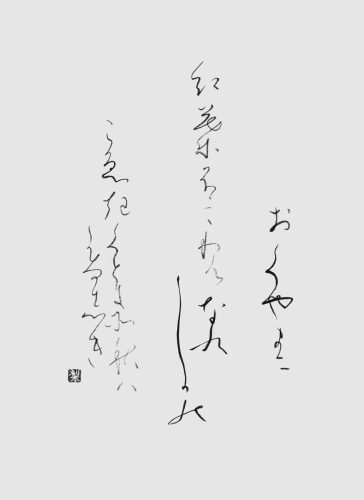 おくやまに
紅葉ふみわけなくしかの
こゑきくときぞ秋ハ
かなしき